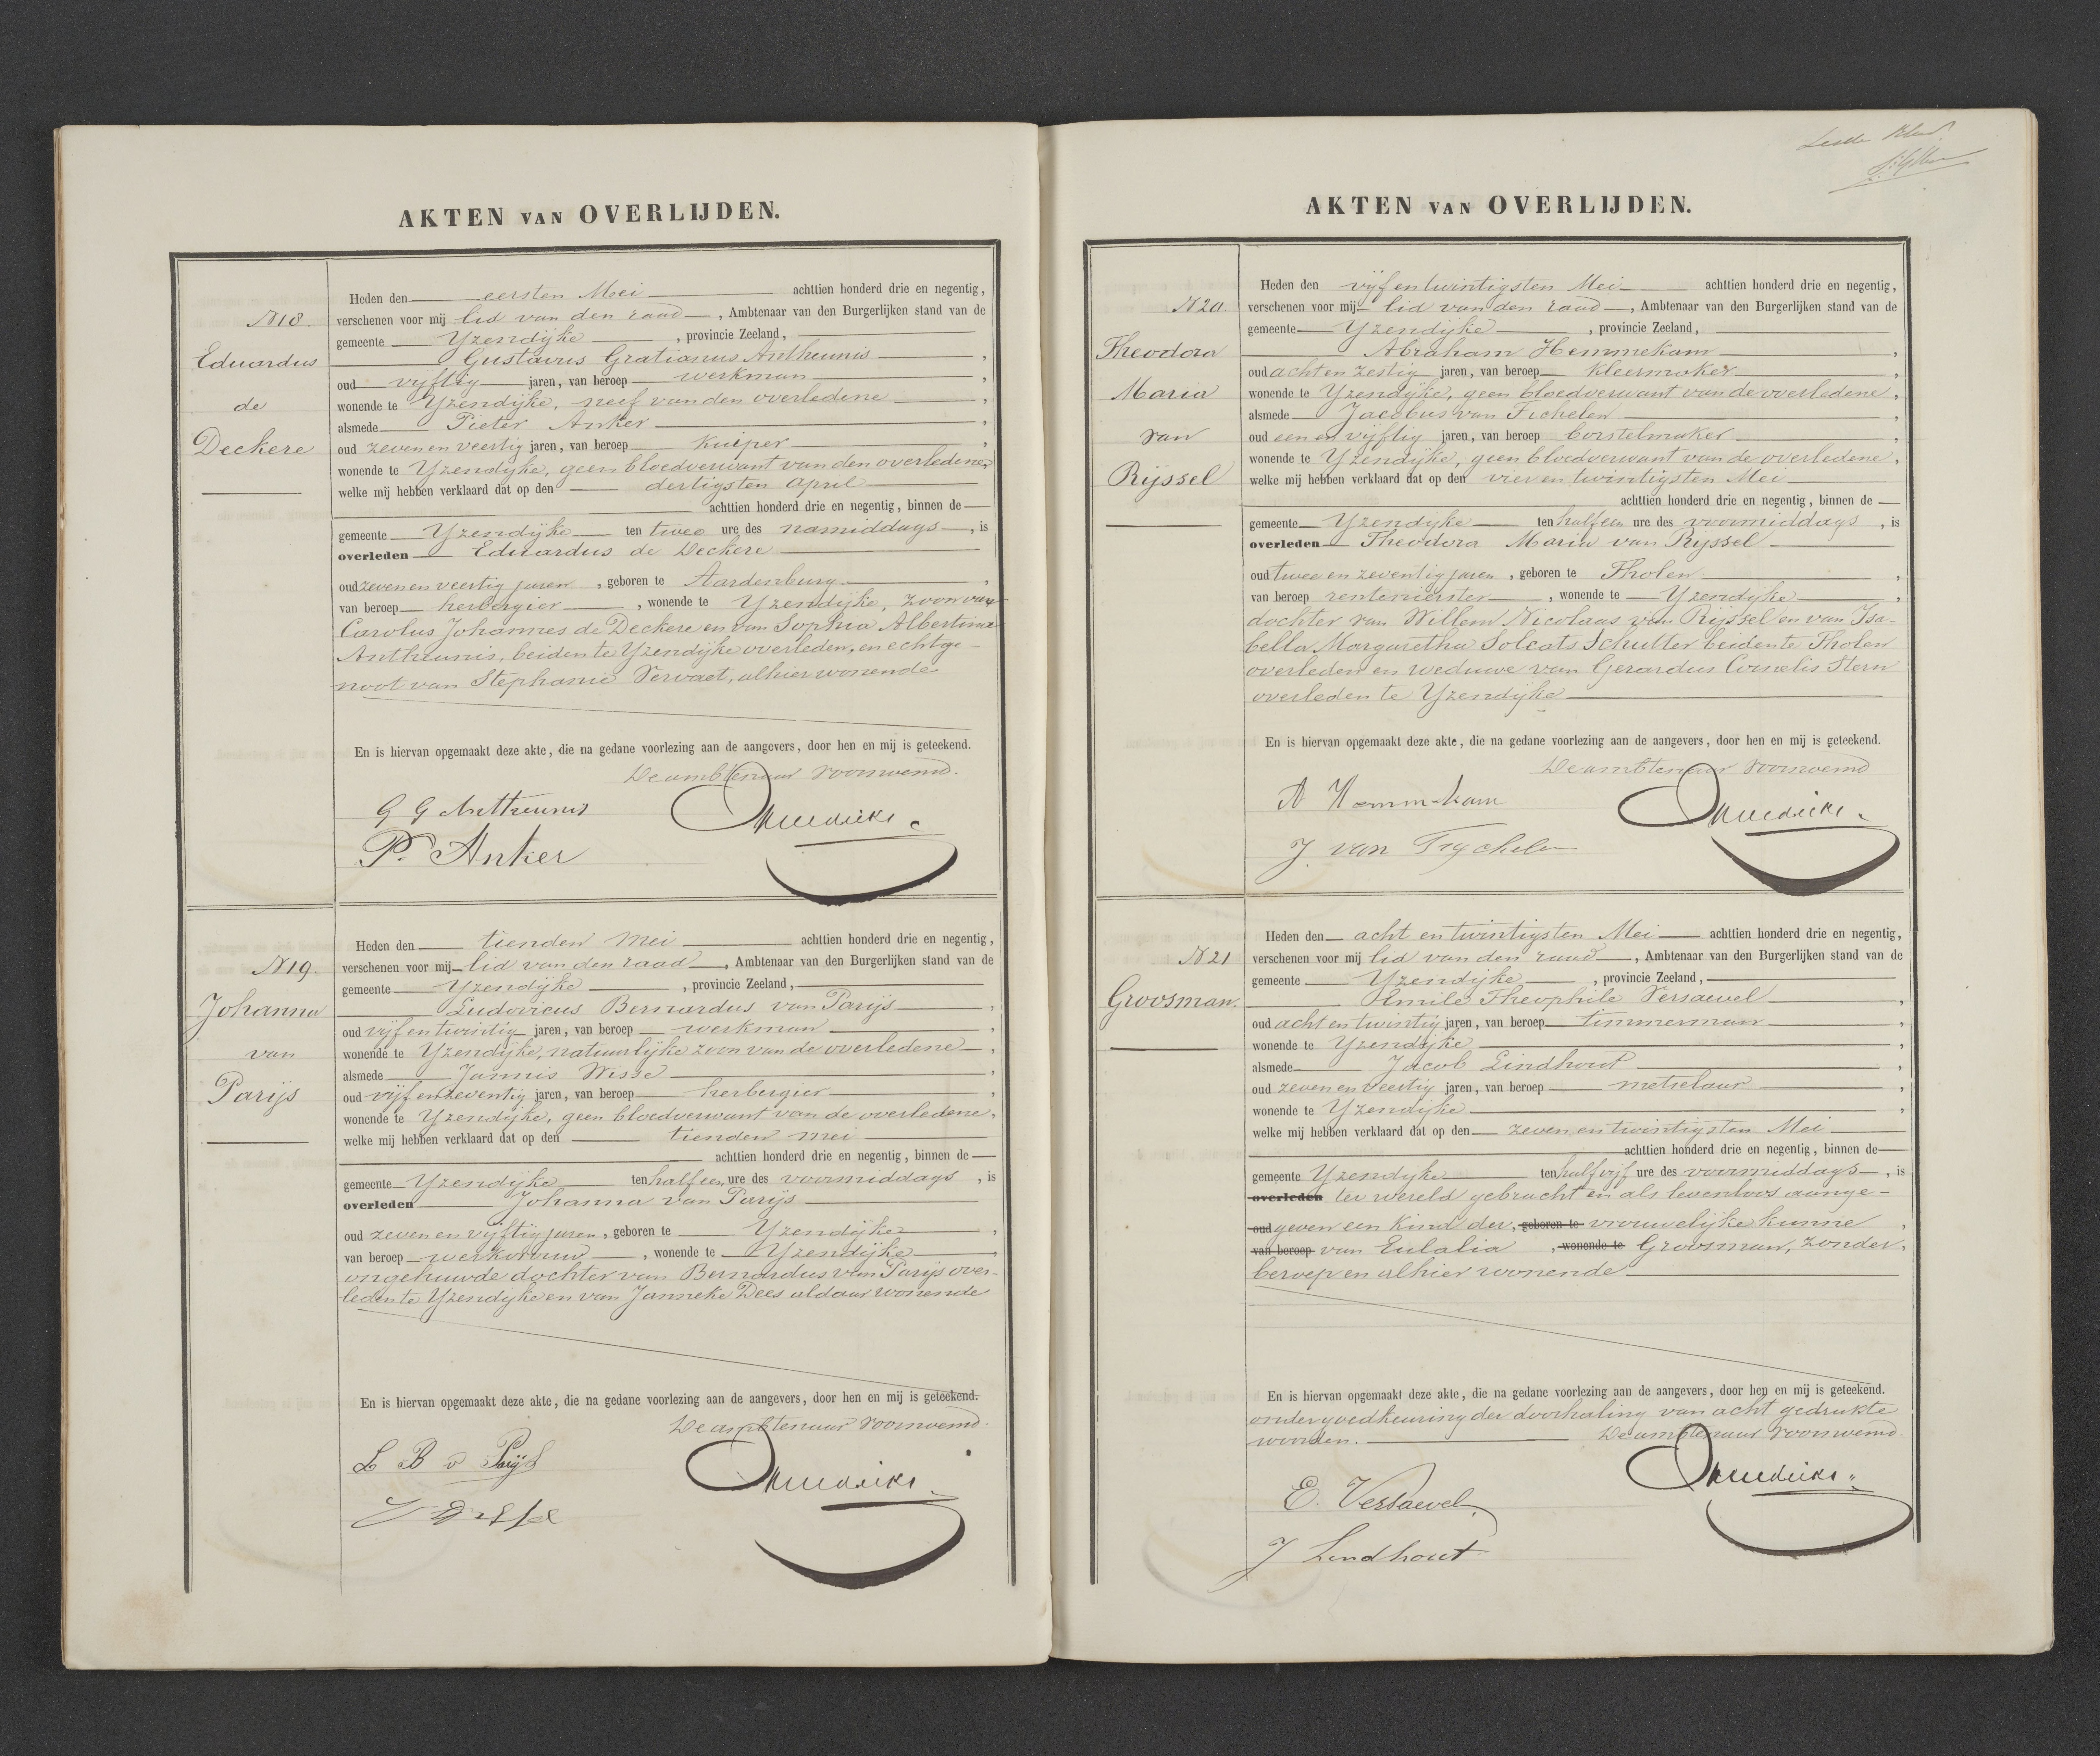 AKTEN VAN OVERLIJDEN.
N 18.
Eduardus
de
Deckere
Heden den eersten Mei achttien honderd drie en negentig,
verschenen voor mij lid van den raad, Ambtenaar van den Burgerlijken stand van de
gemeente Yzendijke, provincie Zeeland,
Gustavus Gratianus Antheunis,
oud vijftig jaren, van beroep werkman,
wonende te Yzendijke, neef van den overledene,
alsmede Pieter Anker,
oud zeven en veertig jaren, van beroep Kuiper,
wonende te Yzendijke, geen bloedverwant van den overledene,
welke mij hebben verklaard dat op den dertigsten April
achttien honderd drie en negentig, binnen de
gemeente Yzendijke ten twee ure des namiddags, is
overleden Eduardus de Deckere
oud zeven en veertig jaren, geboren te Aardenburg,
van beroep herbergier, wonende te Yzendijke, zoon van
Carolus Johannes de Deckere en van Sophia Albertina
Antheunis, beiden te Yzendijke overleden, en echtge-
noot van Stephanie Vervaet, alhier wonende
En is hiervan opgemaakt deze akte, die na gedane voorlezing aan de aangevers, door hen en mij is geteekend.
De ambtenaar voornoemd.
G G Antheunis
P. Anker
N 19.
Johanna
van
Parijs
Heden den tienden Mei achttien honderd drie en negentig,
verschenen voor mij lid van den raad, Ambtenaar van den Burgerlijken stand van de
gemeente Yzendijke, provincie Zeeland,
Ludovicus Bernardus van Parijs,
oud vijf en twintig jaren, van beroep werkman,
wonende te Yzendijke, natuurlijke zoon van de overledene,
alsmede Jannis Wisse,
oud vijf en zeventig jaren, van beroep herbergier,
wonende te Yzendijke, geen bloedverwant van de overledene,
welke mij hebben verklaard dat op den tienden Mei
achttien honderd drie en negentig, binnen de
gemeente Yzendijke ten half een ure des voormiddags, is
overleden Johanna van Parijs
oud zeven en vijftig jaren, geboren te Yzendijke,
van beroep werkvrouw, wonende te Yzendijke,
ongehuwde dochter van Bernardus van Parijs over-
leden te Yzendijke en van Janneke Dees aldaar wonende
En is hiervan opgemaakt deze akte, die na gedane voorlezing aan de aangevers, door hen en mij is geteekend.
De ambtenaar voornoemd.
L B v Parijs
AKTEN VAN OVERLIJDEN.
N 20.
Theodora
Maria
van
Rijssel
Heden den vijf en twintigsten Mei achttien honderd drie en negentig,
verschenen voor mij lid van den raad, Ambtenaar van den Burgerlijken stand van de
gemeente Yzendijke, provincie Zeeland,
Abraham Hemmekam,
oud acht en zestig jaren, van beroep kleermaker,
wonende te Yzendijke, geen bloedverwant van de overledene,
alsmede Jacobus van Fichelen,
oud een en vijftig jaren, van beroep borstelmaker,
wonende te Yzendijke, geen bloedverwant van de overledene,
welke mij hebben verklaard dat op den vier en twintigsten Mei
achttien honderd drie en negentig, binnen de
gemeente Yzendijke ten half een ure des voormiddags, is
overleden Theodora Maria van Rijssel
oud twee en zeventig jaren, geboren te Tholen,
van beroep rentenierster, wonende te Yzendijke,
dochter van Willem Nicolaas van Rijssel en van Isa-
bella Margaretha Schutter beiden te Tholen
overleden en weduwe van Gerardus Cornelis Stern
overleden te Yzendijke
En is hiervan opgemaakt deze akte, die na gedane voorlezing aan de aangevers, door hen en mij is geteekend.
De ambtenaar voornoemd
A Hemmekam
J. van Fychelen
N 21
Groosman.
Heden den acht en twintigsten Mei achttien honderd drie en negentig,
verschenen voor mij lid van den raad, Ambtenaar van den Burgerlijken stand van de
gemeente Yzendijke, provincie Zeeland,
Emile Theophile Versaevel,
oud acht en twintig jaren, van beroep timmerman,
wonende te Yzendijke,
alsmede Jacob Lindhout,
oud zeven en veertig jaren, van beroep metselaar,
wonende te Yzendijke,
welke mij hebben verklaard dat op den zeven en twintigsten Mei
achttien honderd drie en negentig, binnen de
gemeente Yzendijke ten half vijf ure des voormiddags, is
overleden ter wereld gebracht en als levenloos aange-
oud geven een kind der, geboren te vrouwelijke kunne,
van beroep van Eulalia, wonende te Groosman, zonder,
beroep en alhier wonende
En is hiervan opgemaakt deze akte, die na gedane voorlezing aan de aangevers, door hen en mij is geteekend.
onder goedkeuring der doorhaling van acht gedrukte
woorden. De ambtenaar voornoemd.
E. Versaevel
J Lindhout